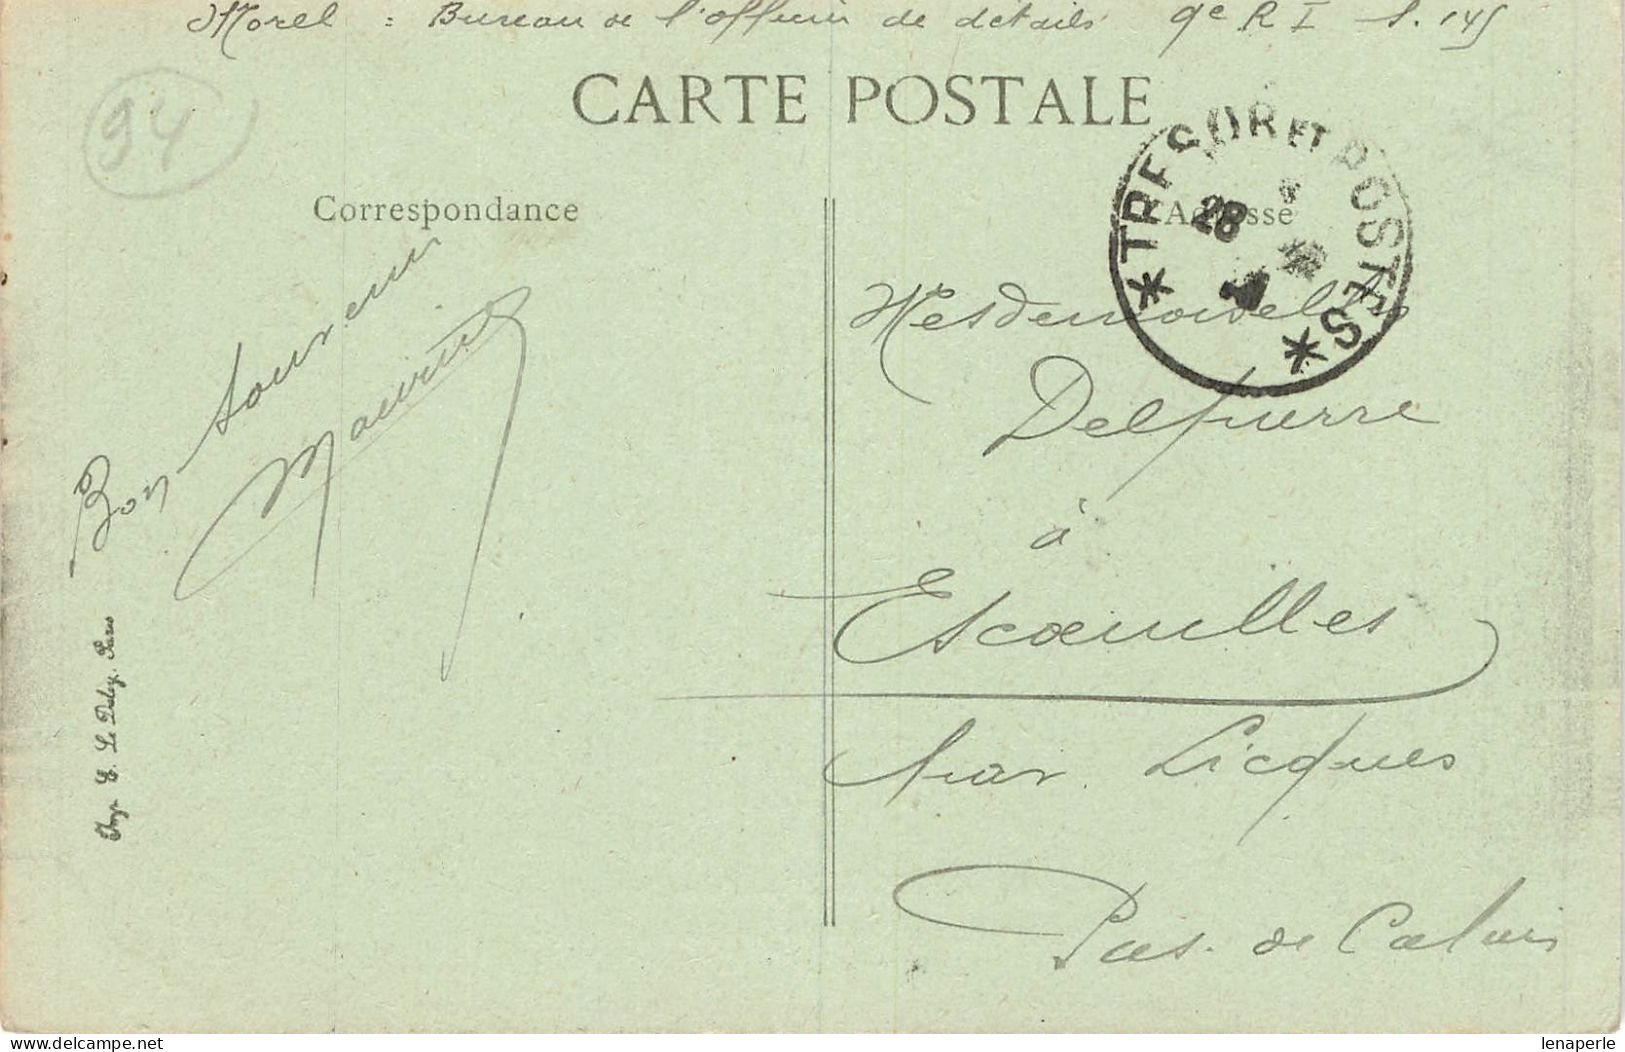 Morel : Bureau de l'officier de détails 9e R I S. 145
CARTE POSTALE
94
TRESOR ET POSTES
28
Correspondance
Adresse
Bon souvenir
Maurice
Mesdemoiselles
Delpierre
à
Escoeuilles
par Licques
Pas de Calais
Imp. E. Le Deley, Paris
delcampe.net
lenaperle